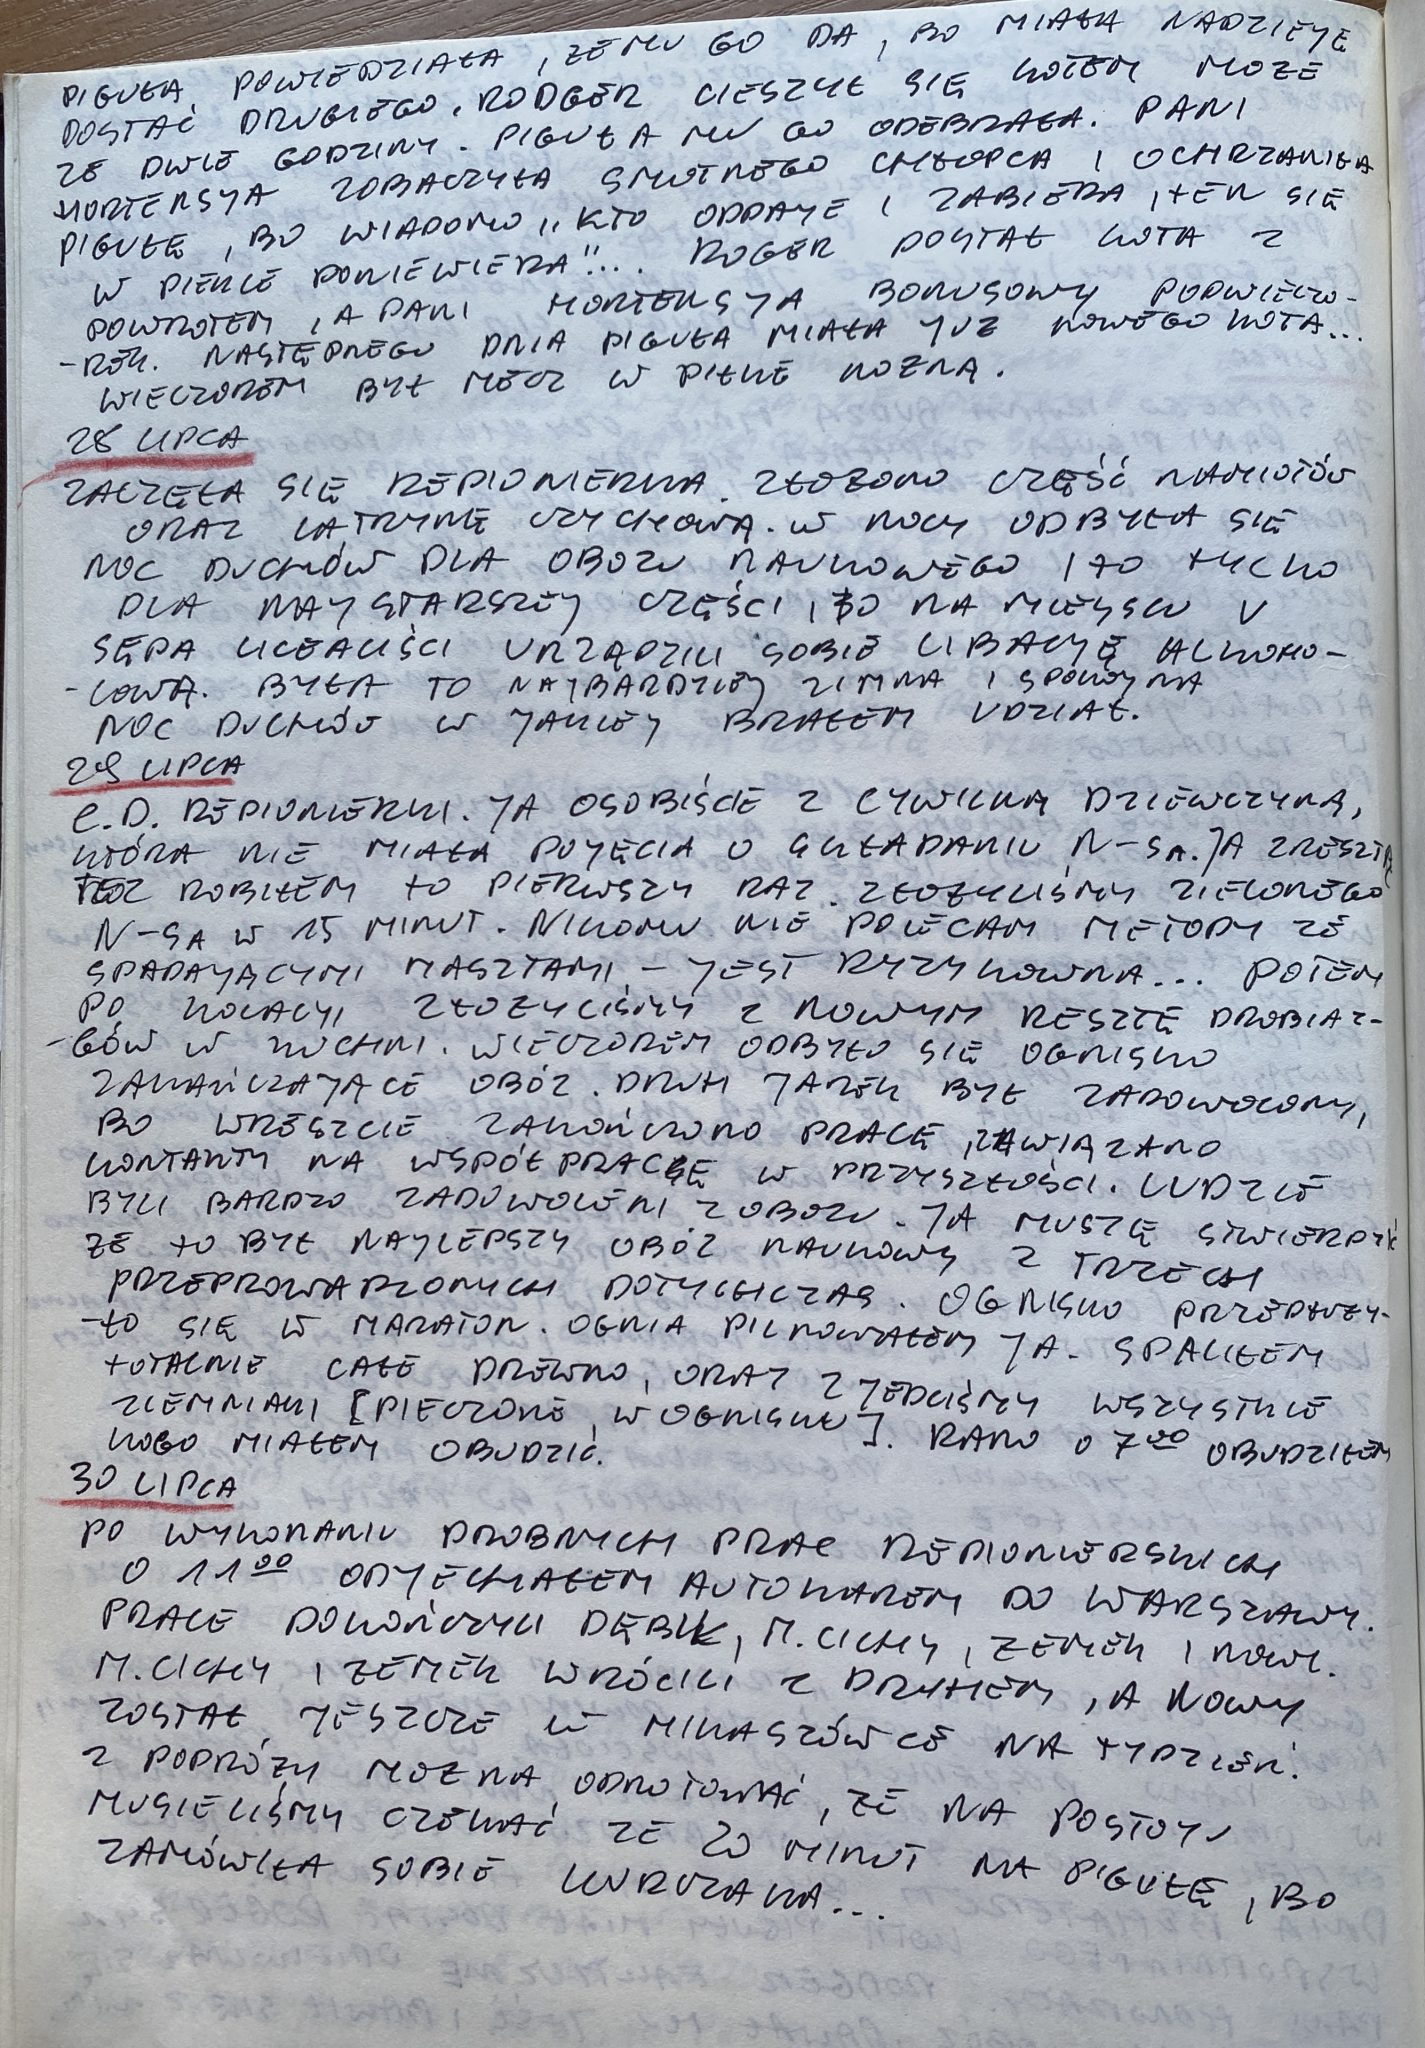 PIGUŁA POWIEDZIAŁA, ŻE MU GO DA, BO MIAŁA NADZIEJĘ
DOSTAĆ DRUGIEGO. RODGER CIESZYŁ SIĘ KOTEM MOŻE
ZE DWIE GODZINY. PIGUŁA MU GO ODEBRAŁA. PANI
HORTENSJA ZOBACZYŁA SMUTNEGO CHŁOPCA I OCHRZANIŁA
PIGUŁĘ, BO WIADOMO „KTO ODDAJE I ZABIERA, TEN SIĘ
W PIEKLE PONIEWIERA"!... ROGER DOSTAŁ KOTA Z
POWROTEM, A PANI HORTENSJA BONUSOWY PODWIECZO-
-REK. NASTĘPNEGO DNIA PIGUŁA MIAŁA JUŻ NOWEGO KOTA...
WIECZOREM BYŁ MECZ W PIŁKĘ NOŻNĄ.
28 LIPCA
ZACZĘŁA SIĘ REPIONIERKA. ZŁOŻONO CZĘŚĆ NAMIOTÓW
ORAZ LATRYNĘ ZUCHOWĄ. W NOCY ODBYŁA SIĘ
NOC DUCHÓW DLA OBOZU NAUKOWEGO I TO TYLKO
DLA NAJSTARSZEJ CZĘŚCI, BO NA MIEJSCU U
SĘPA LICEALIŚCI URZĄDZILI SOBIE LIBACJĘ ALKOHO-
-LOWĄ. BYŁA TO NAJBARDZIEJ ZIMNA I SPOKOJNA
NOC DUCHÓW W JAKIEJ BRAŁEM UDZIAŁ.
29 LIPCA
C.D. REPIONIERKI. JA OSOBIŚCIE Z CYWILNĄ DZIEWCZYNĄ,
KTÓRA NIE MIAŁA POJĘCIA O SKŁADANIU N-SA. JA ZRESZTĄ
TEŻ ROBIŁEM TO PIERWSZY RAZ. ZŁOŻYLIŚMY ZIELONEGO
N-SA W 15 MINUT. NIKOMU NIE POLECAM METODY ZE
SPADAJĄCYMI MASZTAMI – JEST RYZYKOWNA... POTEM
PO KOLACJI ZŁOŻYLIŚMY Z NOWYM RESZTĘ DROBIAZ-
-GÓW W KUCHNI. WIECZOREM ODBYŁO SIĘ OGNISKO
ZAKAŃCZAJĄCE OBÓZ. DRUH JAREK BYŁ ZADOWOLONY,
BO WRESZCIE ZAKOŃCZONO PRACĘ, ZAWIĄZANO
KONTAKTY NA WSPÓŁPRACĘ W PRZYSZŁOŚCI. LUDZIE
BYLI BARDZO ZADOWOLENI Z OBOZU. JA MUSZĘ STWIERDZIĆ
ŻE TO BYŁ NAJLEPSZY OBÓZ NAUKOWY Z TRZECH
PRZEPROWADZONYCH DOTYCHCZAS. OGNISKO PRZEDŁUŻY-
-ŁO SIĘ W MARATON. OGNIA PILNOWAŁEM JA. SPALIŁEM
TOTALNIE CAŁE DREWNO, ORAZ ZJEDLIŚMY WSZYSTKIE
ZIEMNIAKI [PIECZONE W OGNISKU]. RANO O 7⁰⁰ OBUDZIŁEM
KOGO MIAŁEM OBUDZIĆ.
30 LIPCA
PO WYKONANIU DROBNYCH PRAC REPIONIERSKICH
O 11⁰⁰ ODJECHAŁEM AUTOKAREM DO WARSZAWY.
PRACE DOKOŃCZYLI DĘBIK, M. CICHY, ZEMEK I NOWY.
M. CICHY I ZEMEK WRÓCILI Z DRUHEM, A NOWY
ZOSTAŁ JESZCZE W MIKASZÓWCE NA TYDZIEŃ.
Z PODRÓŻY MOŻNA ODNOTOWAĆ, ŻE NA POSTOJU
MUSIELIŚMY CZEKAĆ ZE 20 MINUT NA PIGUŁĘ, BO
ZAMÓWIŁA SOBIE KURCZAKA...